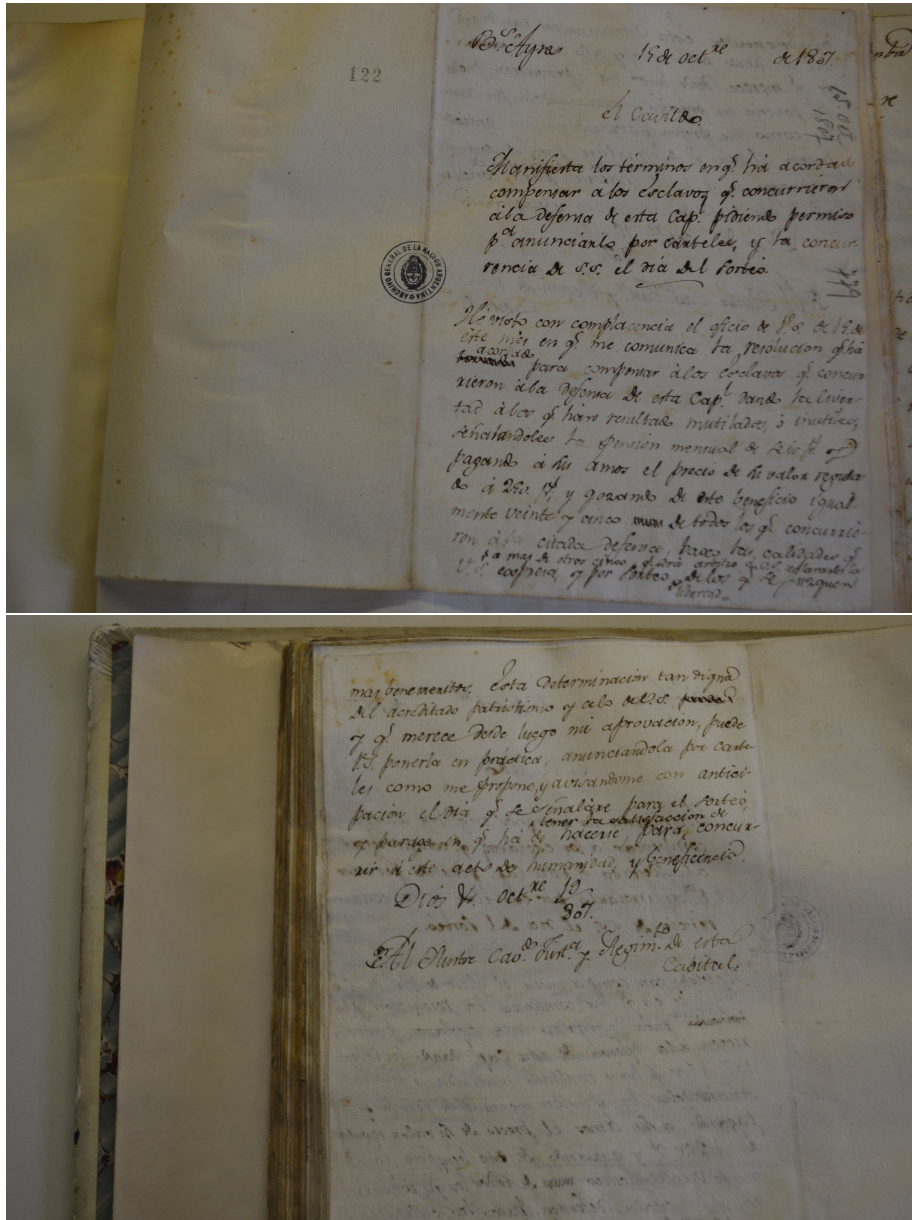 122
Bs. Ayres 15 de Octre de 1807.
15 Oct
1807
El Cavildo
Manifiesta los términos en q.e há acordado
compensar á los esclavos q.e concurrieron
á la defensa de esta Cap.l pidiendo permiso
p.a anunciarlo por carteles, y la concur-
rencia de S.S. el dia del sorteo.
779
ARCHIVO GENERAL DE LA NACION ARGENTINA
Hé visto con complacencia el oficio de V.S. de 15 de
este mes en q.e me comunica la resolucion q.e há
acordado
para compensar á los esclavos q.e concur-
rieron á la defensa de esta Cap.l dando la liver-
tad á los q.e han resultado mutilados, ó inutiles,
señalandoles la pension mensual de seis p.s y
pagando á sus amos el precio de su valor regula-
do á 250. p.s y gozando de este beneficio igual-
mente veinte y cinco de todos los q.e concurrie-
ron á la citada defensa, baxo las calidades q.e
a mas de otros cinco
V.S. expresa, y por sorteo de los q.e se juzguen
libertad
mas benemeritos. Esta determinacion tan digna
del acreditado patriotismo y celo de V.S.
y q.e merece desde luego mi aprovacion, puede
V.S. ponerla en práctica, anunciandola por carte-
les como me propone, y avisandome con antici-
pacion el dia q.e se señaláre para el sorteo,
tener la satisfaccion de
y parage en q.e há de hacerse, para concur-
rir á este acto de humanidad, y beneficencia.
Dios &. Oct.re 19
807.
Al Ilustre Cav.do Just.a y Regim.to de esta
Capital.